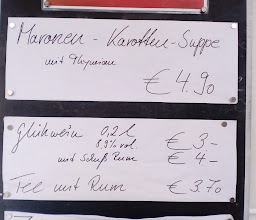 Maronen - Karotten-Suppe
mit Thymian
€ 4.90
Glühwein 0,2 l € 3.-
8,9% vol.
mit Schuß Rum € 4.-
Tee mit Rum € 3.70